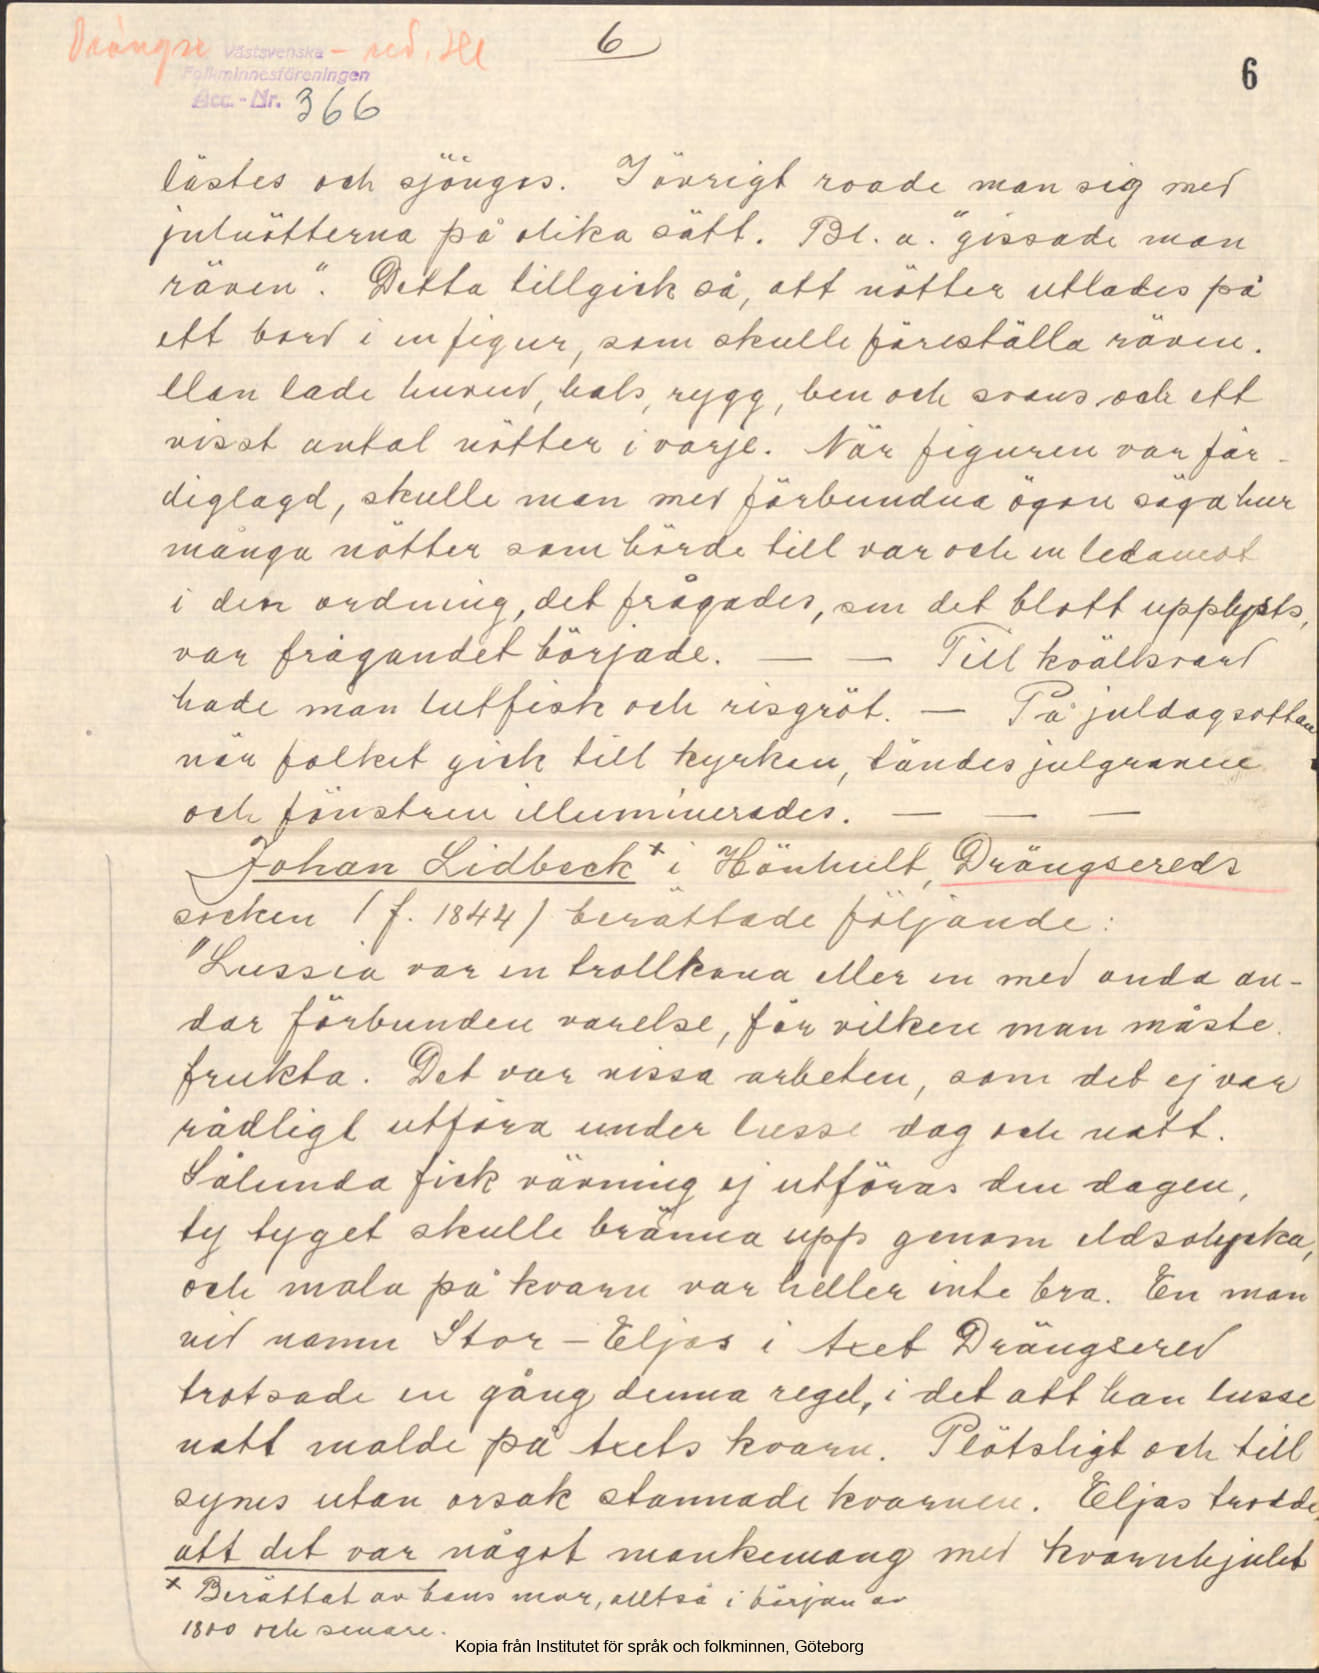 Drängse – red. Hl
6
Västsvenska
Folkminnesföreningen
Acc.-Nr. 366
6
lästes och sjöngos. I övrigt roade man sig med
julnötterna på olika sätt. Bl. a. "gissade man
räven". Detta tillgick så, att nötter utlades på
ett bord i en figur, som skulle föreställa räven.
Man lade huvud, hals, rygg, ben och svans och ett
visst antal nötter i varje. När figuren var fär-
diglagd, skulle man med förbundna ögon säga hur
många nötter som hörde till var och en ledamot
i den ordning, det frågades, som det blott upplysts,
var frågandet började. — — Till kvällsvard
hade man lutfisk och risgröt. — På juldagsottan
när folket gick till kyrkan, tändes julgranen
och fönstren illuminerades. — — —
Johan Lidbeck x i Hönhult, Drängsereds
socken (f. 1844) berättade följande:
"Lussia var en trollkona eller en med onda an-
dar förbunden varelse, för vilken man måste
frukta. Det var vissa arbeten, som det ej var
rådligt utföra under lusse dag och natt.
Sålunda fick vävning ej utföras den dagen,
ty tyget skulle bränna upp genom eldsolycka,
och mala på kvarn var heller inte bra. En man
vid namn Stor-Eljas i Axet Drängsered
trotsade en gång denna regel, i det att han lusse
natt malde på Axets kvarn. Plötsligt och till
synes utan orsak stannade kvarnen. Eljas trodde,
att det var något mankemang med kvarnhjulet
x Berättat av hans mor, alltså i början av
1800 och senare.
Kopia från Institutet för språk och folkminnen, Göteborg